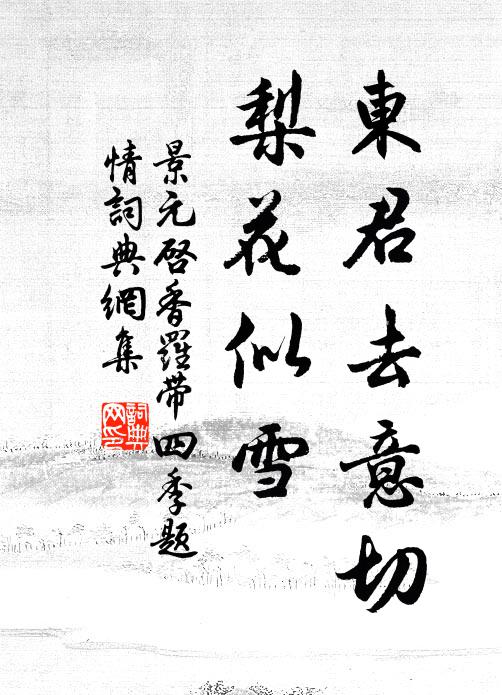 東君去意切
梨花似雪
景元啓香羅帶四季題
情詞典網集
詞典网印